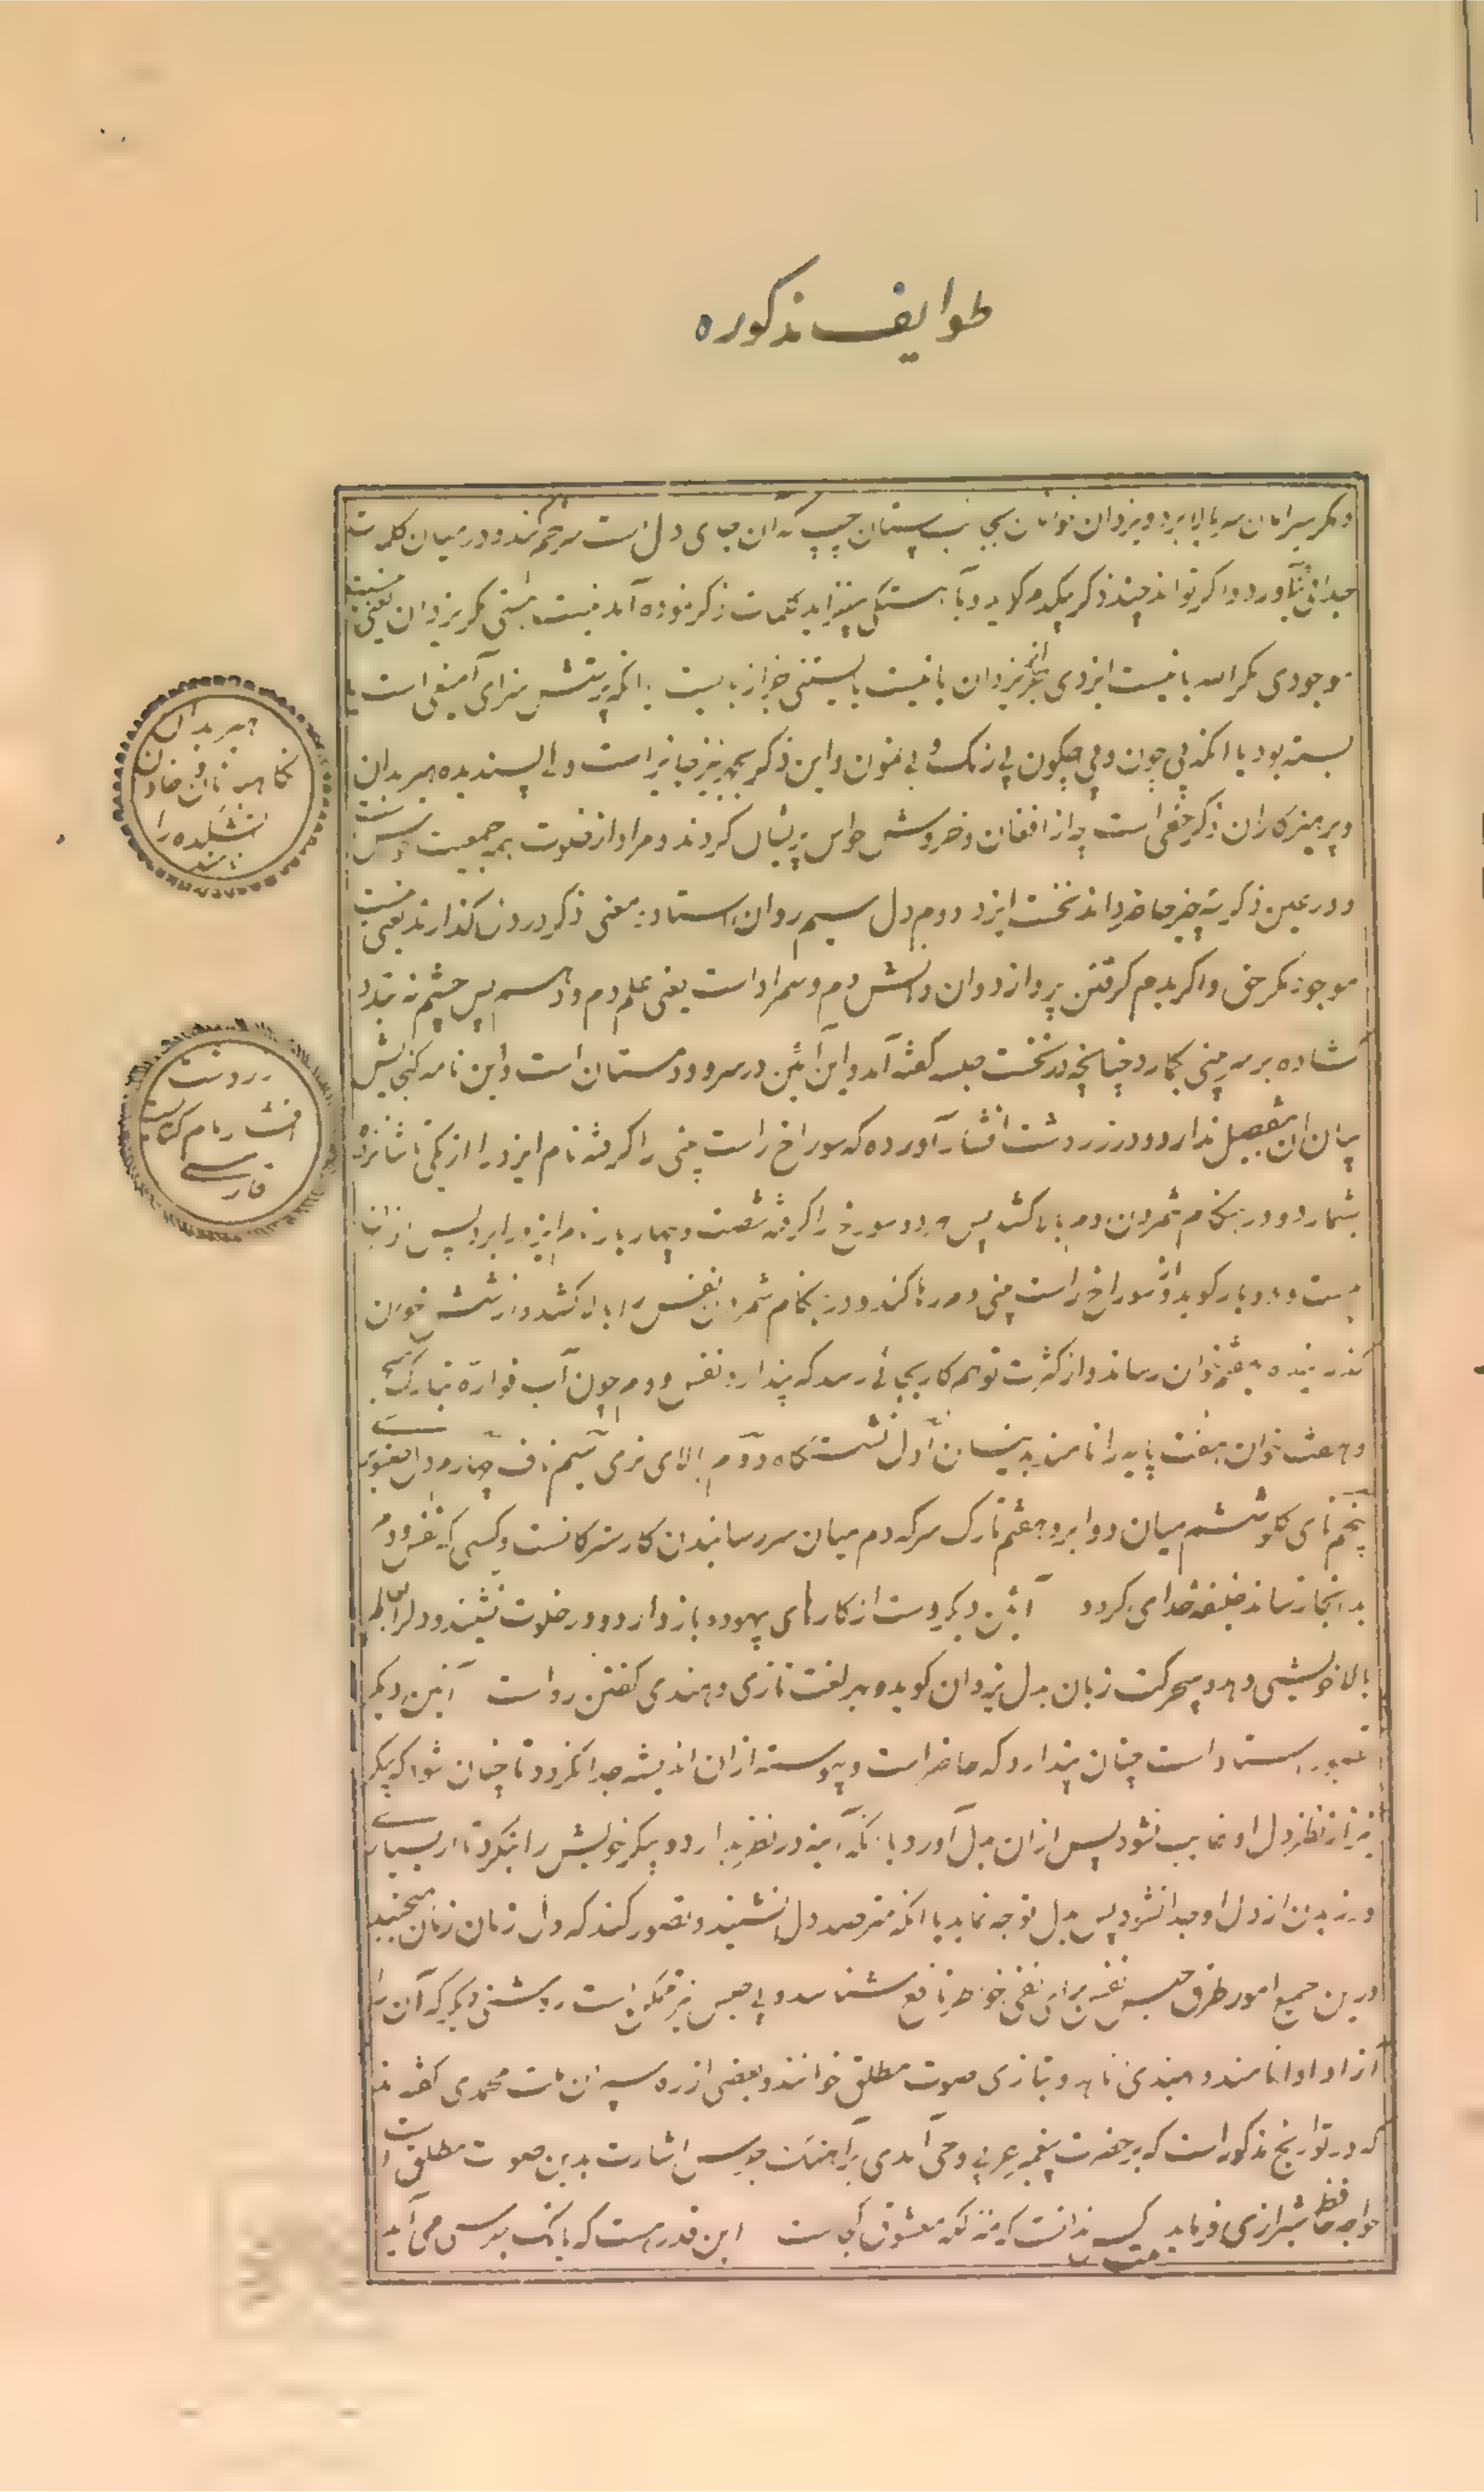 طوایف مذکوره
ومکر سرایان سر بالا برد ویزدان خوانان بجانب پستان چپ که ان جای دل است سر خم کند ودر میان کلمات
جدائی نیاورد واکر تواند چند ذکر بیکدم کوید وبآهستکی بیفزاید کلمات ذکر نموده آمد نیست هستی مکر یزدان یعنی نیست
موجودی مکر الله یا نیست ایزدی مکر یزدان یا نیست بایستنی جز از بایست یا انکه پرستش سزای آمیغی است یا
بسته بود یا انکه بی چون وبی چکون بی رنک و بی نمون واین ذکر بجهر نیز جایز است ولی پسندیده هیربدان
هیربدان
نکاهبانان وخادمان
اتشکده را
نامند
وپرهیزکاران ذکر خفی است چه از افغان وخروش حواس پریشان کردند ومراد از خلوت جمعیت است
ودر عین ذکر سه چیز حاضر داند نخست ایزد دوم دل سیم روان استاد معنی ذکر در دل کذارند یعنی نیست
موجود مکر حق واکر بدم کرفتن پردازد وان دانش دم وسمراد است یعنی علم دم ووهم پس چشم نه بندد
کشاده بر سر بینی بکمارد چنانچه در نخست جلسه کفته آمد واین آئین در سرود مستان است واین نامه کنجایش
زردشت
افشار نام کتابیست
فارسی
بیان ان تفصیل ندارد ودر زردشت افشار آورده که سوراخ راست بینی را کرفته نام ایزد را از یکی تا شانزده
بشمارد ودر هنکام شمردن دم بالا کشد پس هر دو سوراخ را کرفته شصت وچهار بار نام ایزد را برد پس ازان
سی ودو بار کوید واز سوراخ راست بینی دم رها کند ودر هنکام شمردن نفس را بالا کشد واز شش خوان
کذرانیده بهفتم خوان رساند واز کثرت توهم کار بجائی رسد که پندارد نفس ودم چون آب فواره بتارک جهد
وهفت خوان هفت پایه را نامند بدینسان اول نشستکاه دوم بالای نری سیم ناف چهارم دل صنوبری
پنجم نای کلو ششم میان دو ابرو هفتم تارک سر که دم میان سر رسانیدن کار سترکانست وکسی که نفس ودم
بدانجا رساند خلیفه خدای کردد آئین دیکر دست از کارهای بیهوده باز دارد ودر خلوت نشیند ودل را
بالا خویشی دهد وبی حرکت زبان بدل یزدان کوید وبهر لغت تازی وهندی کفتن رواست آئین دیکر
تصور استاد است چنان پندارد که حاضر است وپیوسته ازان اندیشه جدا نکردد تا چنان شود که پیکر
نیز از نظر دل او غایب نشود پس ازان بدل آورد یا انکه آئینه در نظر بدارد وپیکر خویش را بنکرد تا از بسیاری
ورزیدن از دل او جدا نشود پس بدل توجه نماید یا انکه مترصد دل نشیند وتصور کند که دل زمان زمان می‌جنبد
درین جمیع امور طرف حبس نفس برای نفی خواطر نافع شناسد وبی حبس نیز ممکن است روشنی دیکر که آن را
آزاد اوا نامند وهندی ناد وبتازی صوت مطلق خوانند وبعضی از ره سپران ملت محمدی کفته‌اند
که در تواریخ مذکور است که بر حضرت پیغمبر عربی وحی آمدی برآهنک جرس اشارت بدین صوت مطلق است
خواجه حافظ شیرازی فرماید کس ندانست که منزلکه معشوق کجاست این قدر هست که بانک جرسی می آید